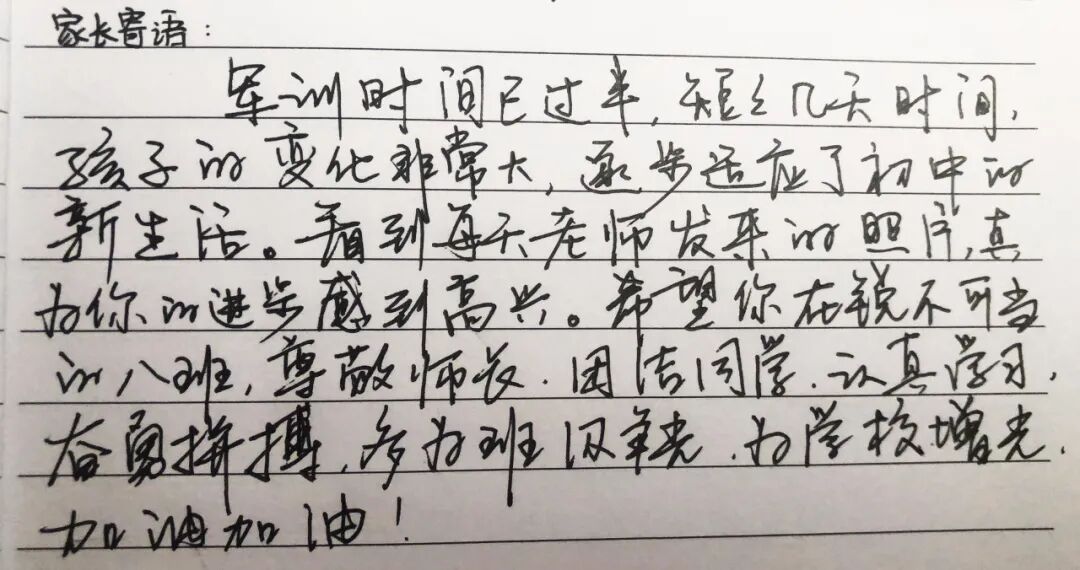 家长寄语：
军训时间已过半，短短几天时间，
孩子的变化非常大，逐步适应了初中的
新生活。看到每天老师发来的照片，真
为你的进步感到高兴。希望你在锐不可当
的八班，尊敬师长、团结同学、认真学习，
奋勇拼搏，多为班级争光，为学校增光，
加油加油！